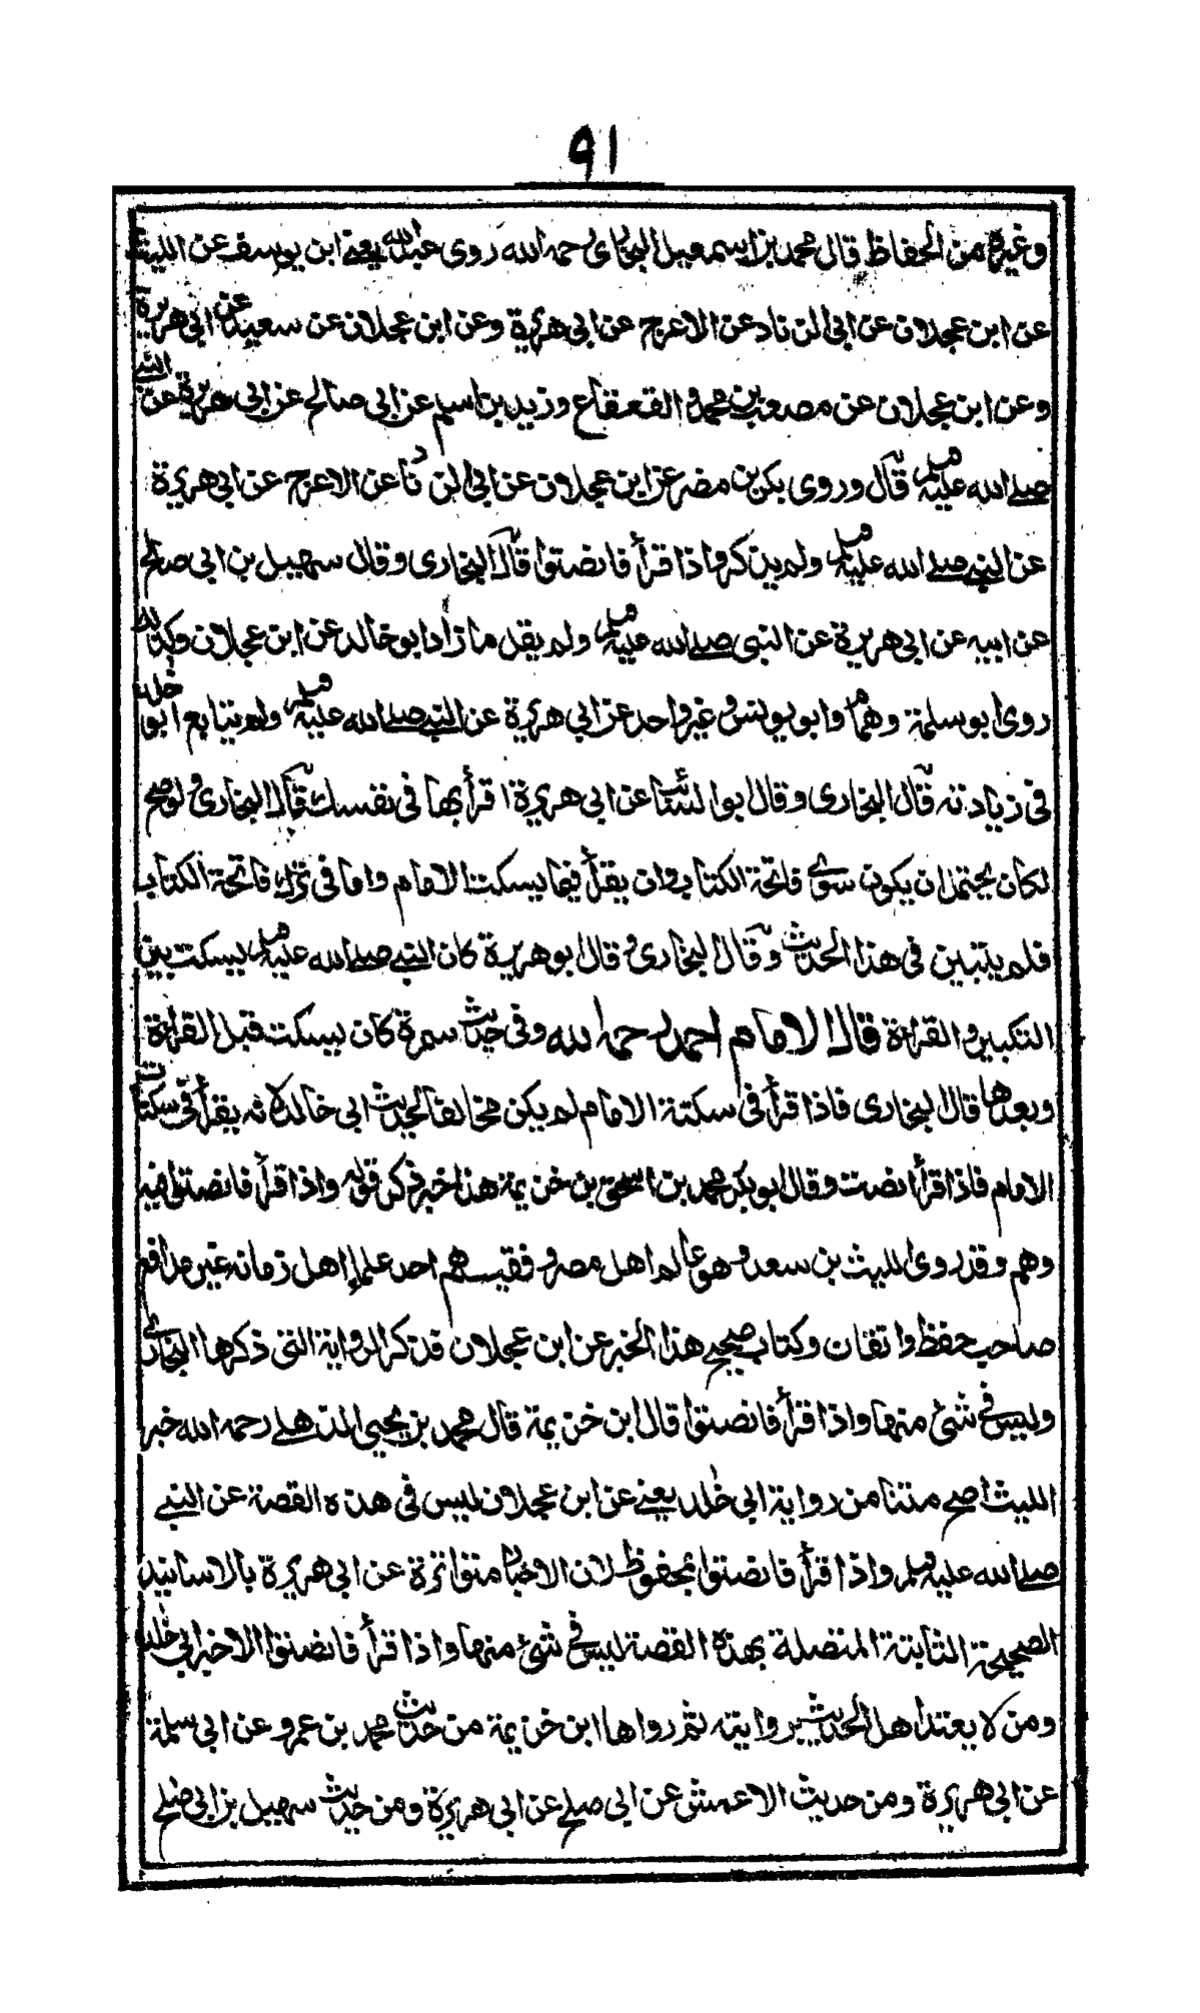 ٩١
وغيره من الحفاظ قال محمد بن اسمعيل البخاري رحمه الله روى عبد الله يعنى ابن يوسف عن الليث
عن ابن عجلان عن ابى الزناد عن الاعرج عن ابى هريرة وعن ابن عجلان عن سعيد عن ابى هريرة
وعن ابن عجلان عن مصعب بن محمد و القعقاع وزيد بن اسلم عن ابى صالح عن ابى هريرة عن النبى
صلى الله عليه وسلم قال وروى بكر بن مضر عن ابن عجلان عن ابى الزناد عن الاعرج عن ابى هريرة
عن النبى صلى الله عليه وسلم ولم يذكروا اذا قرأ فانصتوا قال البخارى وقال سهيل بن ابى صالح
عن ابيه عن ابى هريرة عن النبى صلى الله عليه وسلم ولم يقل ما زاد ابو خالد عن ابن عجلان وكذلك
روى ابو سلمة وهمام وابو يونس وغير واحد عن ابى هريرة عن النبى صلى الله عليه وسلم ولم يتابع ابو خلد
فى زيادته قال البخارى وقال ابو السائب عن ابى هريرة اقرأ بها فى نفسك قال البخارى ولو صح
لكان يحتمل ان يكون سوى فاتحة الكتاب وان يقرأ فيما يسكت الامام واما فى ترك فاتحة الكتاب
فلم يتبين فى هذا الحديث وقال البخارى وقال ابو هريرة كان النبى صلى الله عليه وسلم يسكت بين
التكبير والقراءة قال الامام احمد رحمه الله وفى حديث سمرة كان يسكت قبل القراءة
وبعدها قال البخارى فاذا قرأ فى سكتة الامام لم يكن مخالفا لحديث ابى خالد لانه يقرأ فى سكتات
الامام فاذا قرأ انصت وقال ابو بكر محمد بن اسحق بن خزيمة هذا خبر ذكر قوله واذا قرأ فانصتوا فيه
وهم وقد روى الليث بن سعد وهو عالم اهل مصر وفقيههم احد علماء اهل زمانه غير مدافع
صاحب حفظ واتقان وكتاب صحيح هذا الخبر عن ابن عجلان قد ذكر الرواية التى ذكرها البخارى
وليس فى شئ منها واذا قرأ فانصتوا قال ابن خزيمة قال محمد بن يحيى الذهلى رحمه الله خبر
الليث اصح متنا من رواية ابى خلد يعنى عن ابن عجلان ليس فى هذه القصة عن النبى
صلى الله عليه وسلم واذا قرأ فانصتوا بمحفوظ لان الاخبار متواترة عن ابى هريرة بالاسانيد
الصحيحة الثابتة المتصلة بهذه القصة ليس فى شئ منها واذا قرأ فانصتوا الا خبر ابى خلد
ومن لا يعتد اهل الحديث بروايته ثم رواها ابن خزيمة من حديث محمد بن عمرو عن ابى سلمة
عن ابى هريرة ومن حديث الاعمش عن ابى صلح عن ابى هريرة ومن حديث سهيل بن ابى صلح